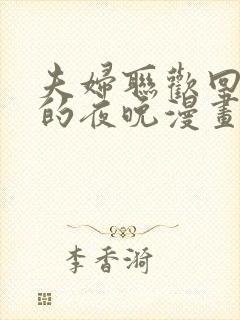 夫婦聯歡回
的夜晚漫畫
李香漪